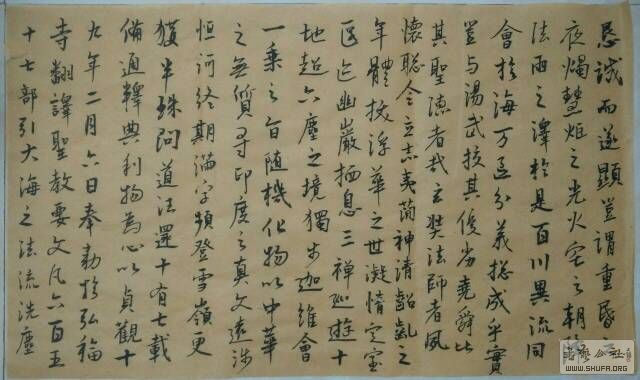 懇誠而遂顯豈謂重昏
夜燭慧炬之光火宅之朝
法雨之澤於是百川異流同
會於海万區分義總成乎實
豈与湯武挍其優劣堯舜比
其聖德者哉玄奘法師者夙
懷聰令立志夷簡神清齠齔之
年體拔浮華之世凝情定室
匿迹幽巖栖息三禪巡遊十
地超六塵之境獨步迦維會
一乘之旨隨機化物以中華
之無質尋印度之真文遠涉
恒河終期滿字頻登雪嶺更
獲半珠問道法還十有七載
備通釋典利物為心以貞觀十
九年二月六日奉勅於弘福
寺翻譯聖教要文凡六百五
十七部引大海之法流洗塵
WWW.SHUFA.ORG